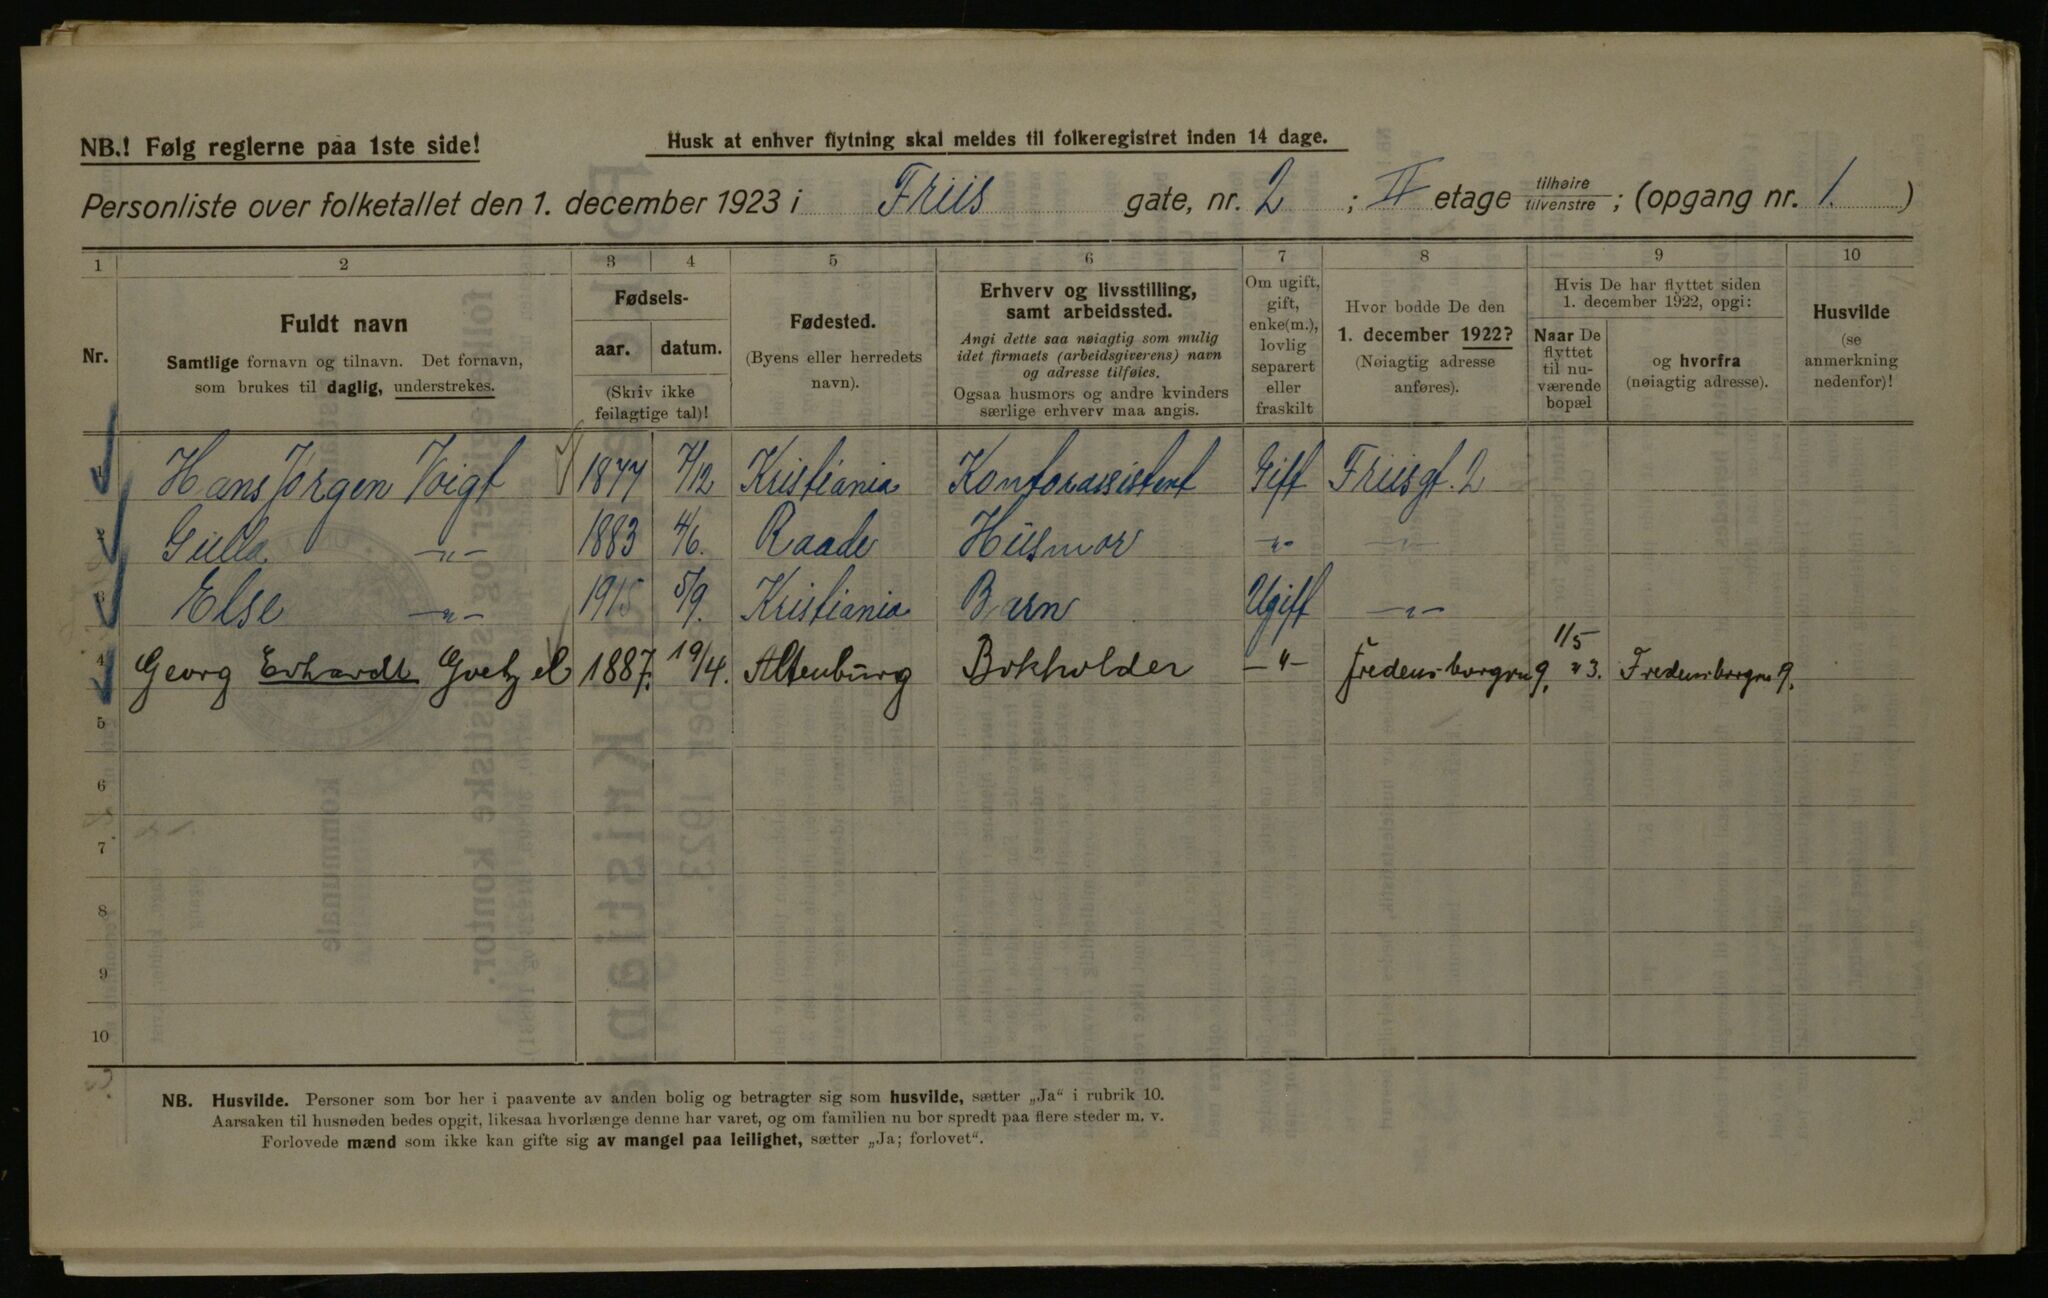 NB.! Følg reglerne paa 1ste side!
Husk at enhver flytning skal meldes til folkeregistret inden 14 dage.
Personliste over folketallet den 1. december 1923 i Friis gate, nr. 2 ; II etage tilhøire tilvenstre ; (opgang nr. 1. )
1 2 3 4 5 6 7 8 9 10
Nr.
Fuldt navn
Samtlige fornavn og tilnavn. Det fornavn,
som brukes til daglig, understrekes.
Fødsels-
aar. datum.
(Skriv ikke
feilagtige tal)!
Fødested.
(Byens eller herredets
navn).
Erhverv og livsstilling,
samt arbeidssted.
Angi dette saa nøiagtig som mulig
idet firmaets (arbeidsgiverens) navn
og adresse tilføies.
Ogsaa husmors og andre kvinders
særlige erhverv maa angis.
Om ugift,
gift,
enke(m.),
lovlig
separert
eller
fraskilt
Hvor bodde De den
1. december 1922?
(Nøiagtig adresse
anføres).
Hvis De har flyttet siden
1. december 1922, opgi:
Naar De
flyttet
til nu-
værende
bopæl
og hvorfra
(nøiagtig adresse).
Husvilde
(se
anmerkning
nedenfor)!
1 Hans Jørgen Voigt 1877 7/12 Kristiania Kontorassistent Gift Friisgt. 2
2 Gulla -"- 1883 4/6. Raade Husmor " -"-
3 Else -"- 1915 5/9. Kristiania Barn Ugift -"-
4 Georg Erhardt Goetzel 1887. 19/4. Altenburg Bokholder -"- Fredensborgvn 9. 1/5 "3. Fredensborgvn 9.
5
6
7
8
9
10
NB. Husvilde. Personer som bor her i paavente av anden bolig og betragter sig som husvilde, sætter „Ja“ i rubrik 10.
Aarsaken til husnøden bedes opgit, likesaa hvorlænge denne har varet, og om familien nu bor spredt paa flere steder m. v.
Forlovede mænd som ikke kan gifte sig av mangel paa leilighet, sætter „Ja; forlovet“.